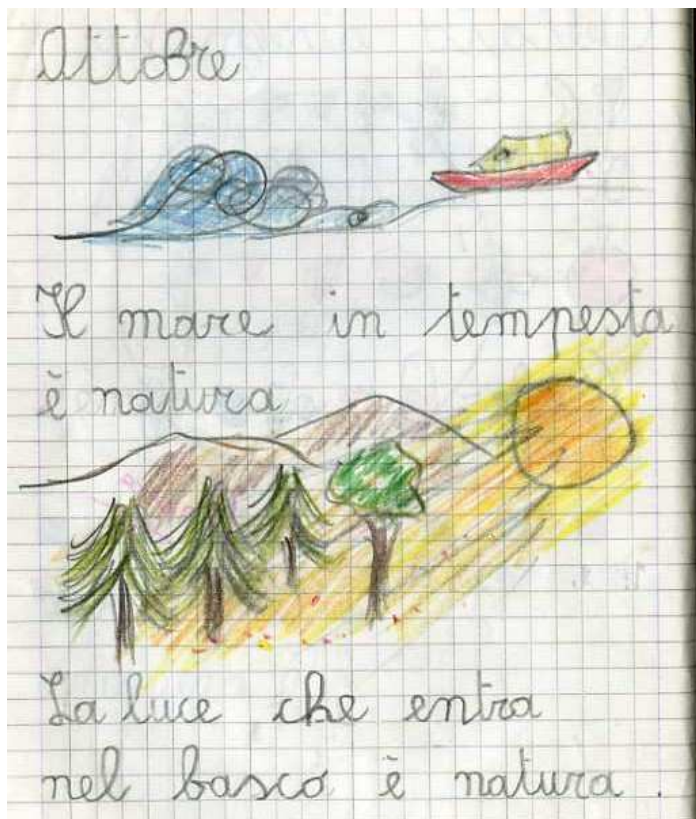 Ottobre
Il mare in tempesta
è natura
La luce che entra
nel bosco è natura.